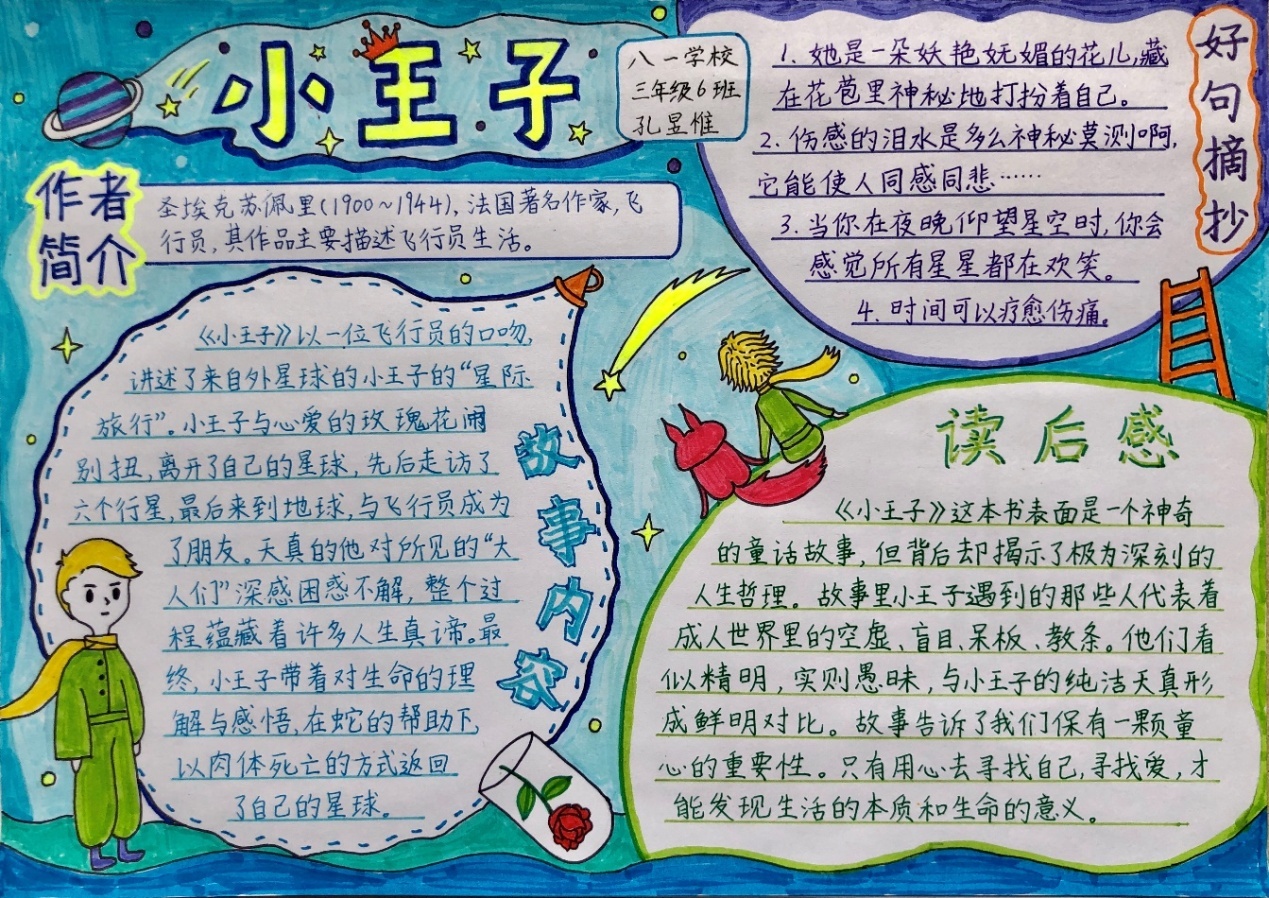 小王子
八一学校
三年级6班
孔昱惟
作者
简介
圣埃克苏佩里(1900~1944),法国著名作家,飞
行员,其作品主要描述飞行员生活。
好句摘抄
1. 她是一朵妖艳妩媚的花儿,藏
在花苞里神秘地打扮着自己。
2. 伤感的泪水是多么神秘莫测啊,
它能使人同感同悲……
3. 当你在夜晚仰望星空时,你会
感觉所有星星都在欢笑。
4. 时间可以疗愈伤痛。
故事内容
《小王子》以一位飞行员的口吻,
讲述了来自外星球的小王子的“星际
旅行”。小王子与心爱的玫瑰花闹
别扭,离开了自己的星球,先后走访了
六个行星,最后来到地球,与飞行员成为
了朋友。天真的他对所见的“大
人们”深感困惑不解,整个过
程蕴藏着许多人生真谛。最
终,小王子带着对生命的理
解与感悟,在蛇的帮助下,
以肉体死亡的方式返回
了自己的星球。
读后感
《小王子》这本书表面是一个神奇
的童话故事,但背后却揭示了极为深刻的
人生哲理。故事里小王子遇到的那些人代表着
成人世界里的空虚、盲目、呆板、教条。他们看
似精明,实则愚昧,与小王子的纯洁天真形
成鲜明对比。故事告诉了我们保有一颗童
心的重要性。只有用心去寻找自己,寻找爱,才
能发现生活的本质和生命的意义。